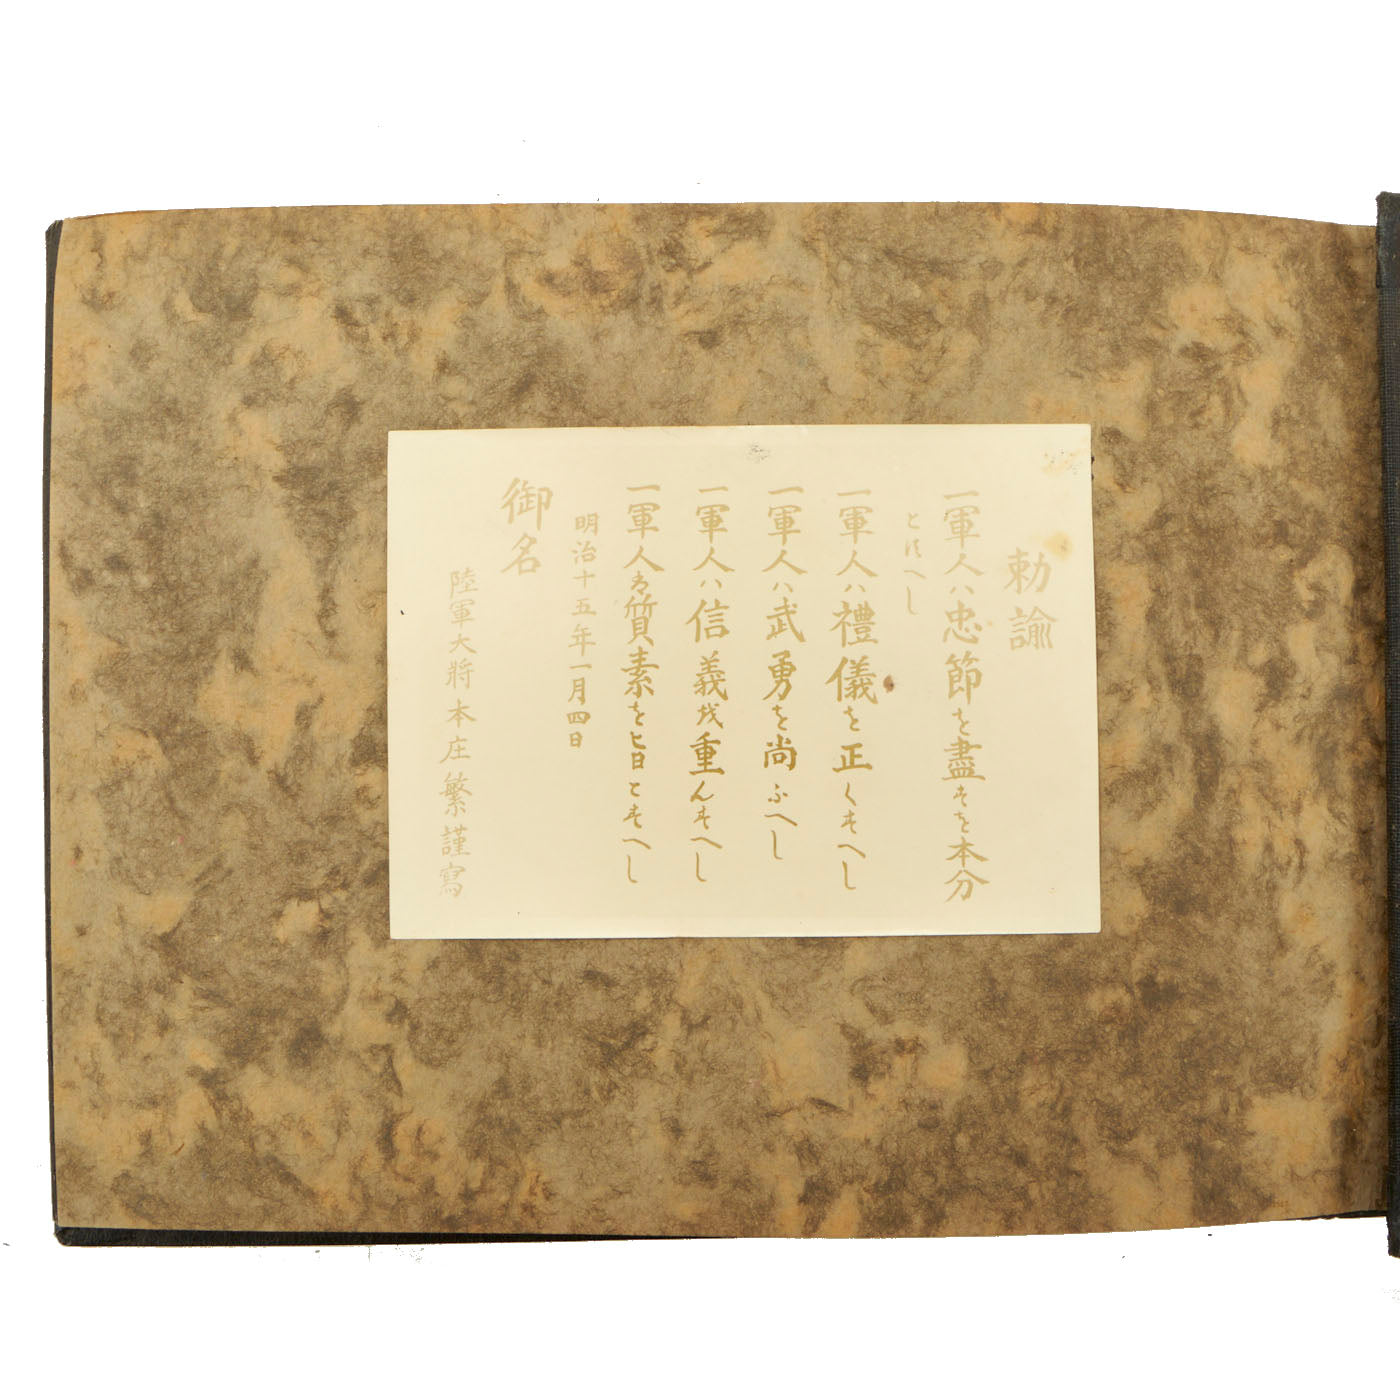 勅諭
一軍人ハ忠節を盡すを本分
とすへし
一軍人ハ禮儀を正くすへし
一軍人ハ武勇を尚ふへし
一軍人ハ信義を重んすへし
一軍人は質素を旨とすへし
明治十五年一月四日
御名
陸軍大將本庄繁謹寫